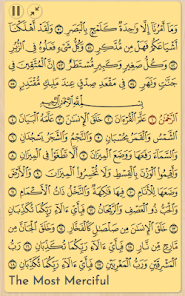 وَمَآ أَمْرُنَآ إِلَّا وَٰحِدَةٌ كَلَمْحٍۭ بِٱلْبَصَرِ ۝ وَلَقَدْ أَهْلَكْنَآ
أَشْيَاعَكُمْ فَهَلْ مِن مُّدَّكِرٍ ۝ وَكُلُّ شَىْءٍ فَعَلُوهُ فِى ٱلزُّبُرِ
۝ وَكُلُّ صَغِيرٍ وَكَبِيرٍ مُّسْتَطَرٌ ۝ إِنَّ ٱلْمُتَّقِينَ فِى
جَنَّٰتٍ وَنَهَرٍ ۝ فِى مَقْعَدِ صِدْقٍ عِندَ مَلِيكٍ مُّقْتَدِرٍۭ ۝
بِسْمِ ٱللَّهِ ٱلرَّحْمَٰنِ ٱلرَّحِيمِ
ٱلرَّحْمَٰنُ ۝ عَلَّمَ ٱلْقُرْءَانَ ۝ خَلَقَ ٱلْإِنسَٰنَ ۝ عَلَّمَهُ ٱلْبَيَانَ ۝
ٱلشَّمْسُ وَٱلْقَمَرُ بِحُسْبَانٍ ۝ وَٱلنَّجْمُ وَٱلشَّجَرُ يَسْجُدَانِ ۝
وَٱلسَّمَآءَ رَفَعَهَا وَوَضَعَ ٱلْمِيزَانَ ۝ أَلَّا تَطْغَوْا۟ فِى ٱلْمِيزَانِ ۝
وَأَقِيمُوا۟ ٱلْوَزْنَ بِٱلْقِسْطِ وَلَا تُخْسِرُوا۟ ٱلْمِيزَانَ ۝ وَٱلْأَرْضَ
وَضَعَهَا لِلْأَنَامِ ۝ فِيهَا فَٰكِهَةٌ وَٱلنَّخْلُ ذَاتُ ٱلْأَكْمَامِ ۝
وَٱلْحَبُّ ذُو ٱلْعَصْفِ وَٱلرَّيْحَانُ ۝ فَبِأَىِّ ءَالَآءِ رَبِّكُمَا تُكَذِّبَانِ
۝ خَلَقَ ٱلْإِنسَٰنَ مِن صَلْصَٰلٍ كَٱلْفَخَّارِ ۝ وَخَلَقَ ٱلْجَآنَّ مِن
مَّارِجٍ مِّن نَّارٍ ۝ فَبِأَىِّ ءَالَآءِ رَبِّكُمَا تُكَذِّبَانِ ۝ رَبُّ
ٱلْمَشْرِقَيْنِ وَرَبُّ ٱلْمَغْرِبَيْنِ ۝ فَبِأَىِّ ءَالَآءِ رَبِّكُمَا تُكَذِّبَانِ ۝
The Most Merciful